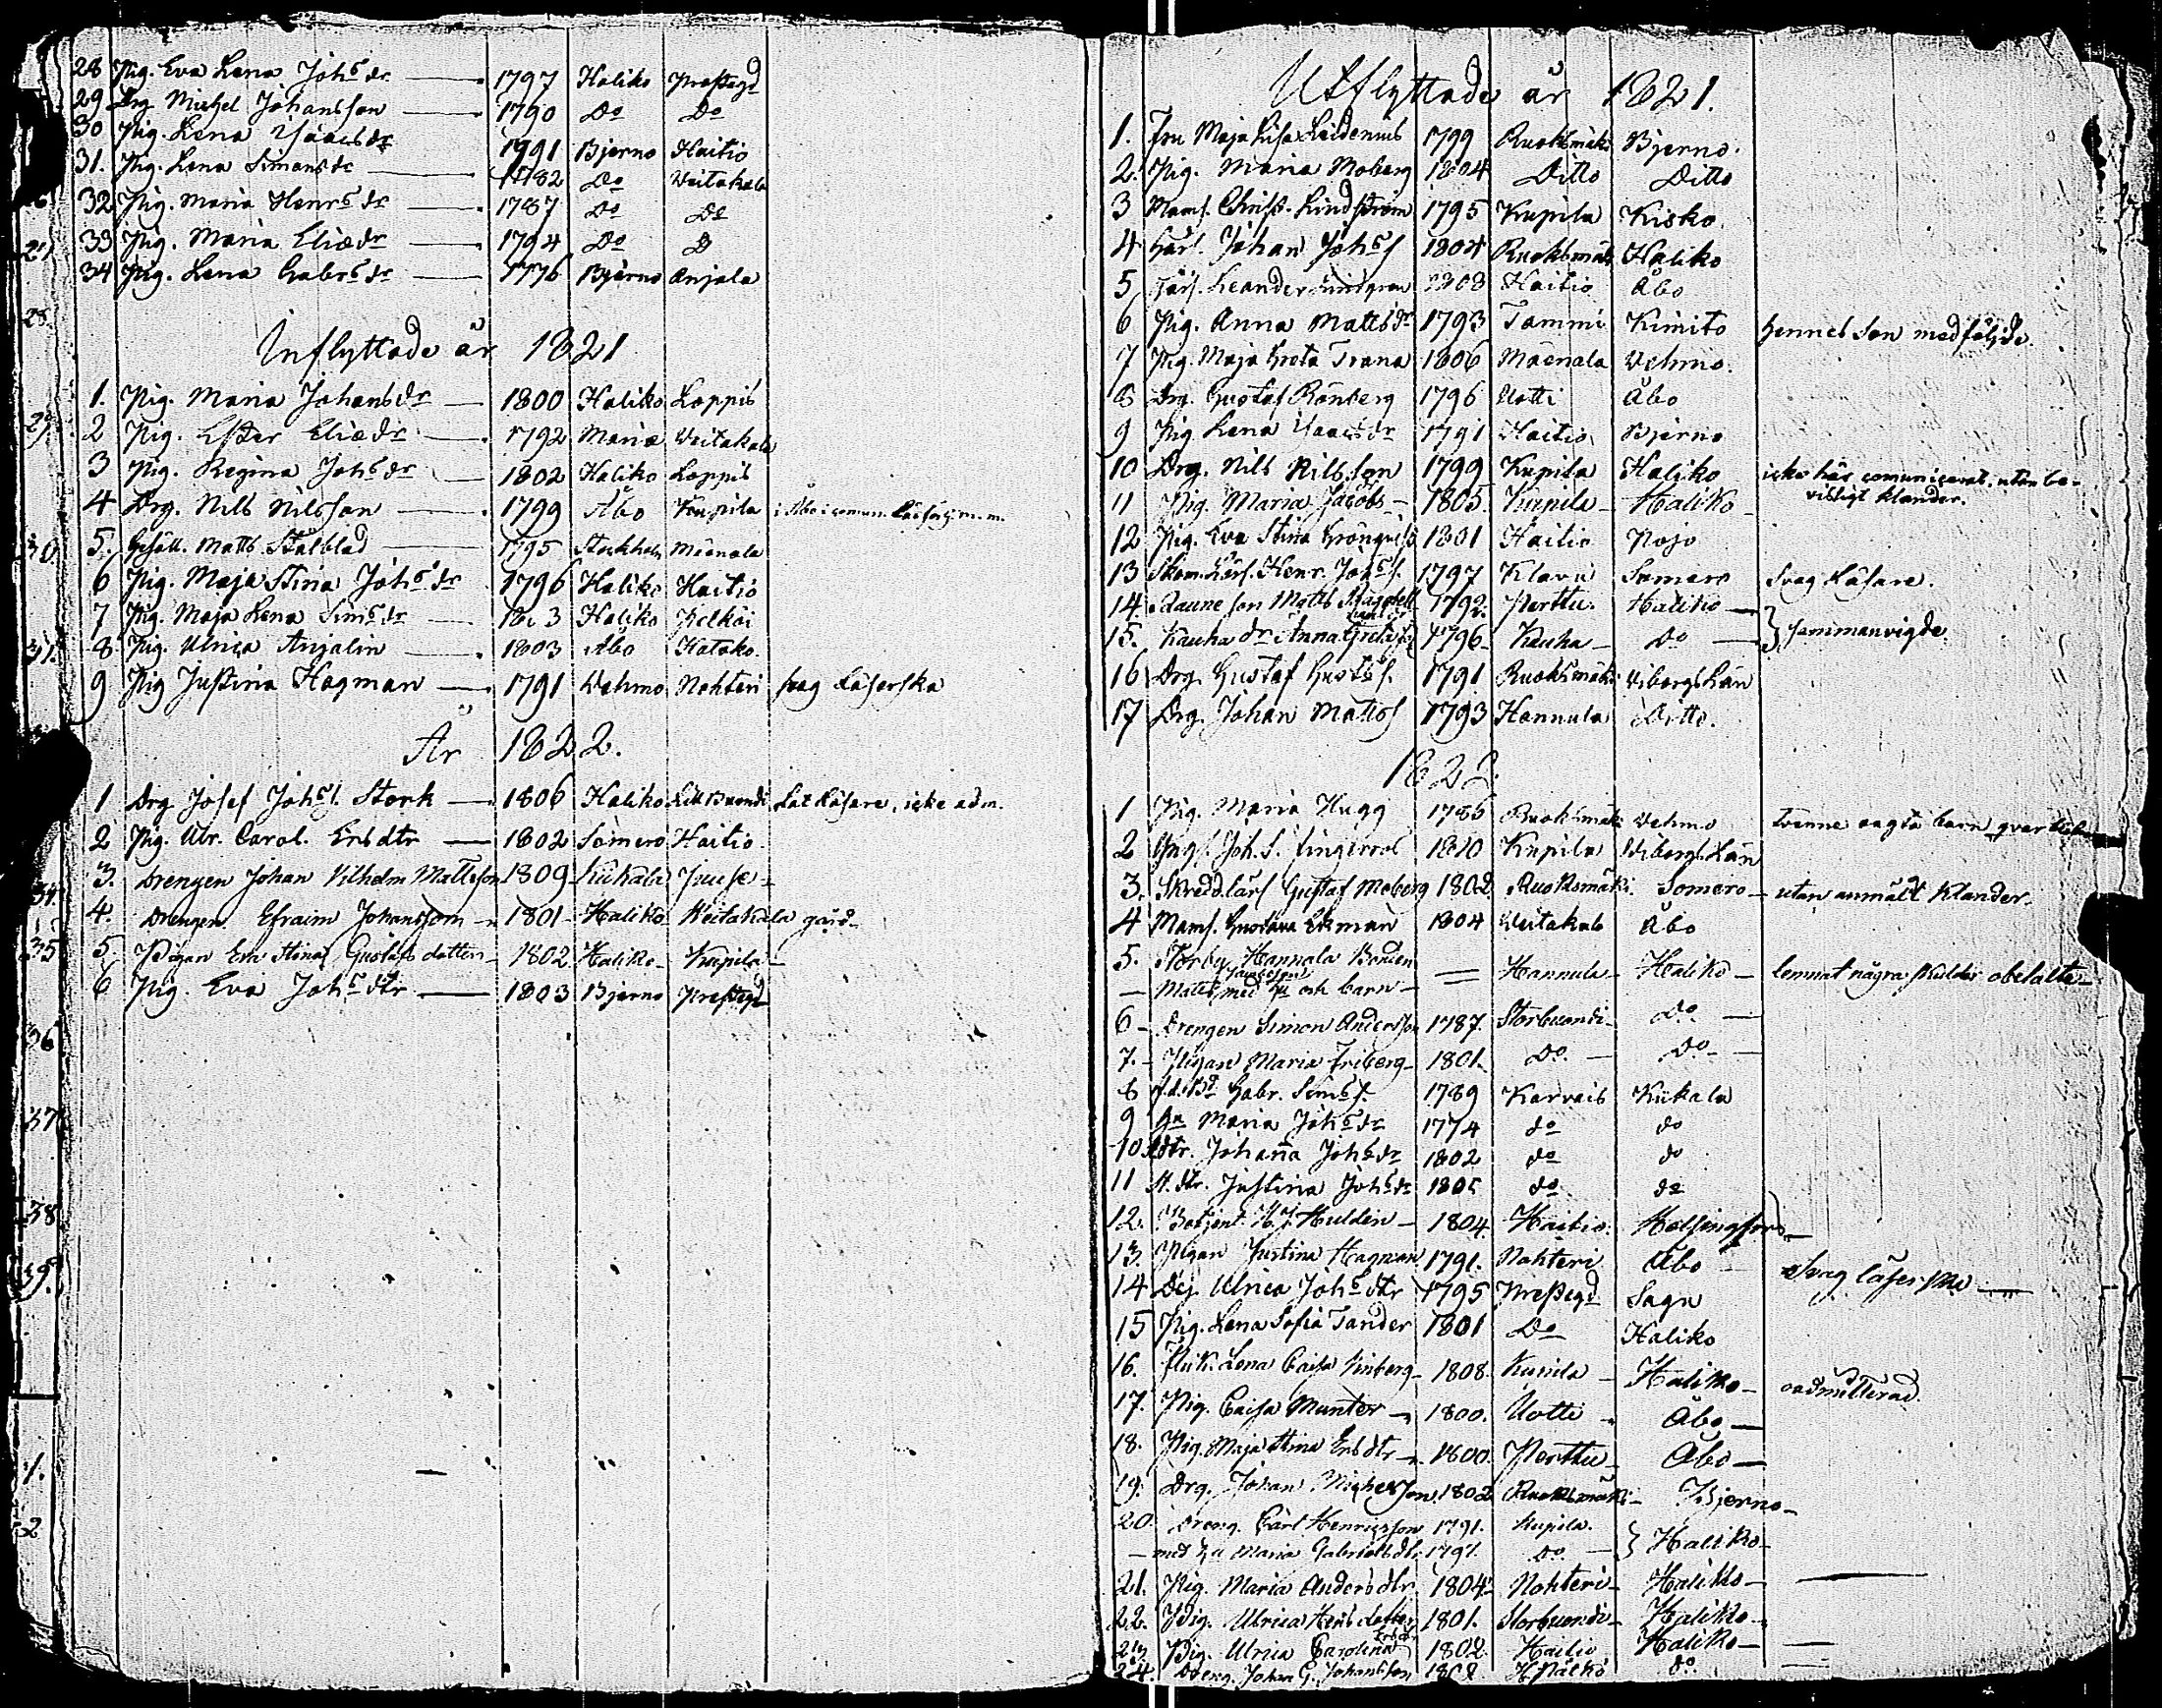 28 Pig. Eva Lena Johs dr — 1797 Haliko Prestgd
29 Drg Michel Johansson — 1790 Do Do
30 Pig. Lena Isaacs dr 1791 Bjerno Haitio
31. Pig. Lena Simons dr — 1782 Do Veitakala
32 Pig. Maria Henrs dr — 1787 Do Do
33 Pig. Maria Eliædr — 1794 Do D
34 Pig. Lena Gabrs dr — 1776 Bjerno Anjala
Inflyttade år 1821
1. Pig. Maria Johansdr — 1800 Haliko Loppis
2 Pig. Ester Eliædr — 1792 Mariæ Veitakala
3 Pig. Regina Johs dr — 1802 Haliko Loppis
4 Drg. Nils Nilsson — 1799 Åbo Kupila
5. Gesäll. Matts Stålblad — 1795 Stockholm Mäenala
6 Pig. Maja Stina Johs dr 1796 Haliko Haitio
7 Pig. Maja Lena Sims dr — 18 3 Haliko Kelkoi
8. Pig. Ulrica Anjalin — 1803 Åbo Katako
9 Pig Justina Hagman — 1791 Wehmo Nohteri svag läserska
År 1822.
1 Drg Josef Johs S. Stork — 1806 Haliko Lill Buondi Lat läsare, icke adm.
2 Pig. Ulr. Carol. Ersdtr — 1802 Somero Haitio
3. Drengen Johan Vilhelm Mattsson 1809 Kiikala Juuse
4. Drengen Efraim Johansson 1801 Haliko Veitakala gård
5. Pigan Eva Stina Gustafs dotter 1802 Haliko Kupila
6 Pig. Eva Johs dtr — 1803 Bjerno Prestgd
Utflyttade år 1821.
1. Fru Maja Lisa Leidenius 1799 Ruoksmäki Bjerno.
2. Pig. Maria Moberg 1804 Ditto Ditto
3 Mams. Christ. Lindström 1795 Kupila Kisko.
4 Johan Johs S 1804 Ruoksmäki Haliko
5 Leander Lindgren 1808 Haitio Åbo
6 Pig. Anna Mattsdr 1793 Tammi Kimito hennes son medföljde.
7 Pig. Maja Greta Trana 1806 Mäenala Vehmo.
8 Drg. Gustaf Rönberg 1796 Uotti Åbo
9 Pig Lena Isaacsdr 1791 Haitio Bjerno
10 Drg. Nils Nilsson 1799 Kupila Haliko icke här comunicerat, utan be-
visligt klander.
11 Pig. Maria Jacobs 1805. Kupila Haliko
12 Pig. Eva Stina Grönqvist 1801 Haitio Pojo
13 Skom. Lärl. Henr. Johs S. 1797 Klavu Somero Svag läsare.
14. Raune son Matts 1792. Perttu. Haliko —
15. Kauha dr. Anna Greta 1796 Kauha Do — } sammanvigde
16 Drg. Gustaf Gustafs. 1791 Ruoksmäki Viborgs Län
17 Drg. Johan Mattss 1793 Hannula Ditto.
1822.
1 Pig. Maria Hugg 1785 Ruoksmäki Vehmo tvenne oagta barn
2 Yngl. Joh. S. Fingerroos 1810 Kupila Viborgs Län
3. Skreddlärl Gustaf Moberg 1802 Ruoksmäki Somero — utan anmält klander.
4 Mams. Gustava Ekman 1804 Veitakala Åbo
5. Storby Hannala Bonden
— Matts med hu och barn — Hannula Haliko lemnat några skulder obetalte
6 Drengen Simon Andersson 1787. Storbuondi Do —
7. Pigan Maria Friberg 1801. Do. Do
8 f.d. Bd Gabr. Sims S. 1789 Karvais Kiikala
9 Hu Maria Johs dr 1774 do do
10 dtr. Johanna Johs dr 1802 do do
11 dtr. Justina Johs dr 1805 do do
12. Betjent. Hulden 1804. Haitio. Helsingfors
13. Pigan Justina Hagman 1791. Nohteri Åbo Svag läserska —
14 Dej. Ulrica Johs dtr 1795 Prestgd Sagu
15 Pig. Lena Sofia Tander 1801 Do Haliko
16. Flick. Lena Caisa Vinberg 1808. Kupila Haliko oadmitterad.
17. Pig. Caisa Munter 1800. Uotti Åbo —
18. Pig. Maja Stina Ersdtr 1800. Perttu Åbo —
19. Drg. Johan Michelsson 1802 Ruoksmäki Bjerno
20. Dreng. Carl Henricsson 1791. Kupila.
— med hu Maria Gabrielsdtr. 1791. Do. } Haliko
21. Pig. Maria Andersdtr. 1804. Nohteri Haliko —
22. Pig. Ulrica Hens dotter 1801. Storbuondi Haliko
23. Pig. Ulrica Carolina Ersdr 1802. Haitio Haliko —
24. Dreng. Johan G. Johansson 1802 Do.